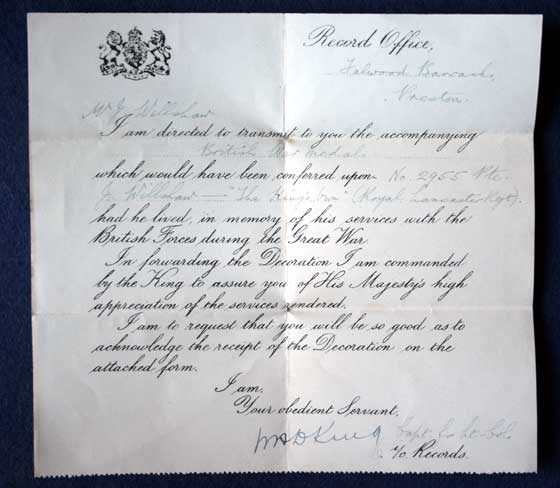 Record Office,
Fulwood Barracks,
Preston.
Mr J. Willshaw
I am directed to transmit to you the accompanying
British War Medal
which would have been conferred upon No. 2955 Pte.
J. Willshaw "The King's Own (Royal Lancaster Regt).
had he lived, in memory of his services with the
British Forces during the Great War.
In forwarding the Decoration I am commanded
by the King to assure you of His Majesty's high
appreciation of the services rendered.
I am to request that you will be so good as to
acknowledge the receipt of the Decoration on the
attached form.
I am,
Your obedient Servant,
King Capt for Lt Col.
i/c Records.